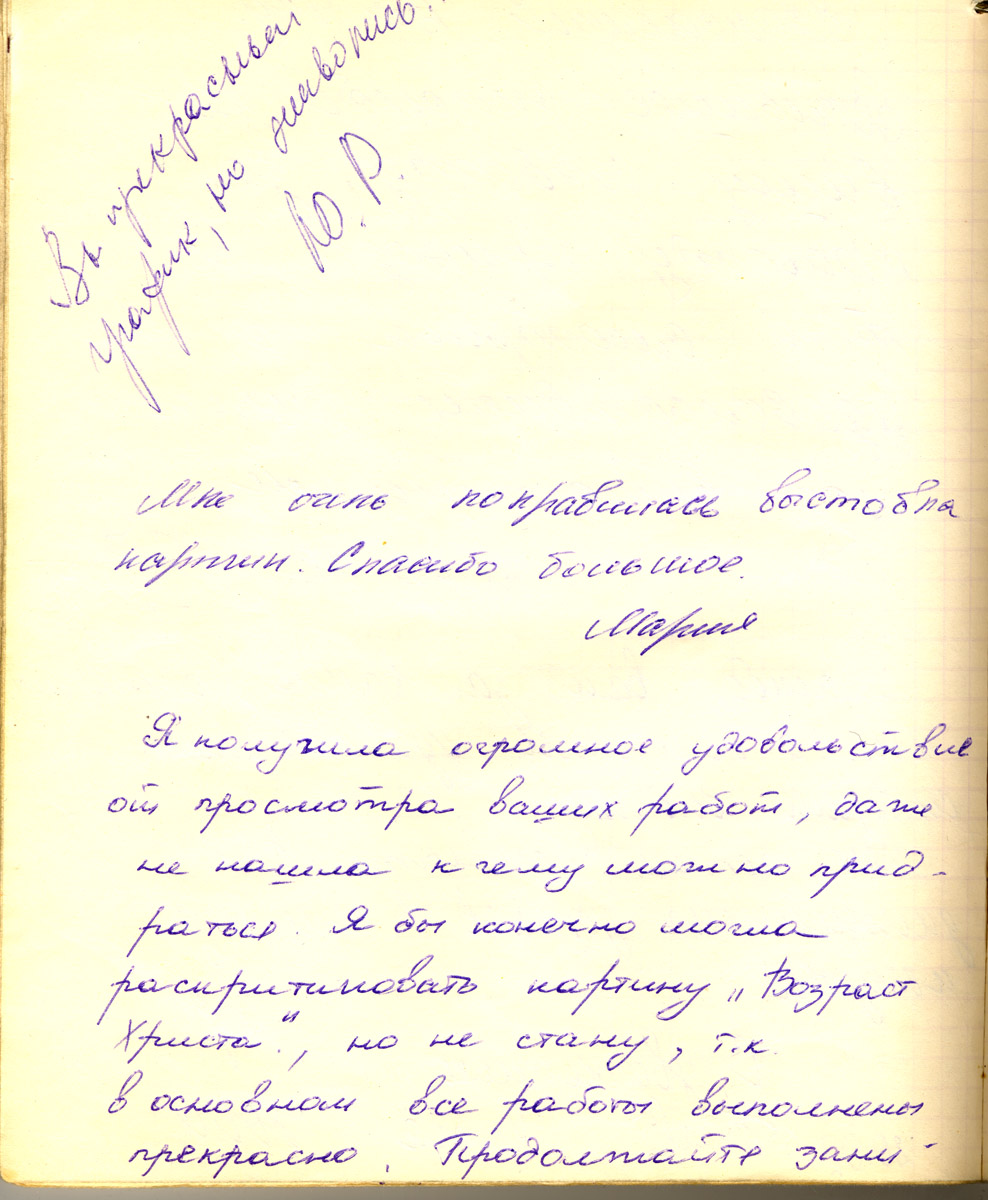 Вы прекрасный
график, но живопись..
Ю. Р.
Мне очень понравилась выставка
картин. Спасибо большое.
Мария
Я получила огромное удовольствие
от просмотра ваших работ, даже
не нашла к чему можно прид-
раться. Я бы конечно могла
раскритиковать картину „Возраст
Христа.", но не стану, т.к.
в основном все работы выполнены
прекрасно. Продолжайте зани-